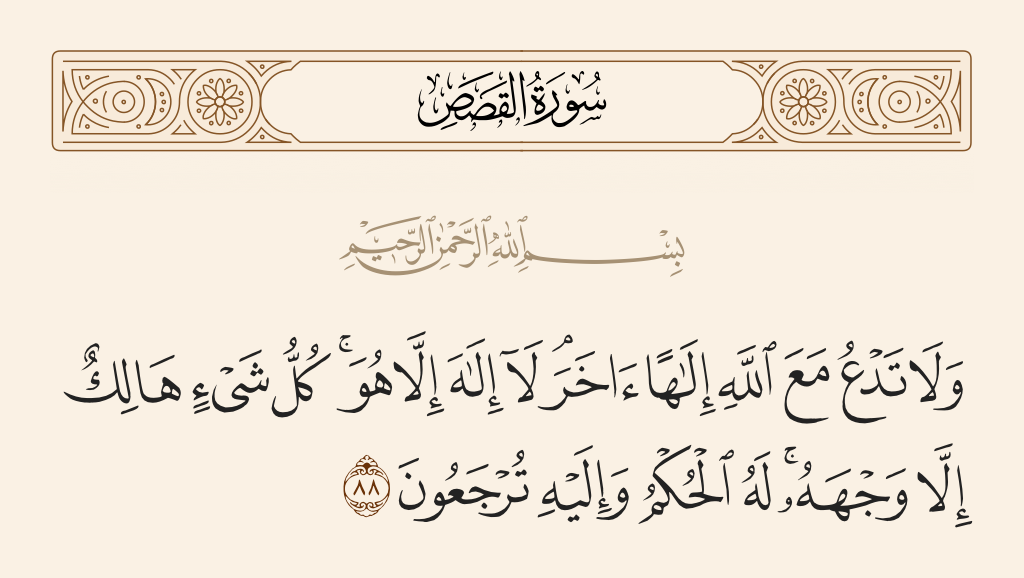 سُورَةُ القَصَصِ
بِسْمِ ٱللَّهِ ٱلرَّحْمَٰنِ ٱلرَّحِيمِ
وَلَا تَدْعُ مَعَ ٱللَّهِ إِلَٰهًا ءَاخَرَ ۘ لَآ إِلَٰهَ إِلَّا هُوَ ۚ كُلُّ شَىْءٍ هَالِكٌ
إِلَّا وَجْهَهُۥ ۚ لَهُ ٱلْحُكْمُ وَإِلَيْهِ تُرْجَعُونَ ٨٨